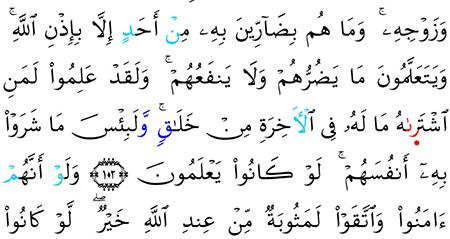 وَزَوْجِهِۦۚ وَمَا هُم بِضَآرِّينَ بِهِۦ مِنْ أَحَدٍ إِلَّا بِإِذْنِ ٱللَّهِۚ
وَيَتَعَلَّمُونَ مَا يَضُرُّهُمْ وَلَا يَنفَعُهُمْۚ وَلَقَدْ عَلِمُوا۟ لَمَنِ
ٱشْتَرَىٰهُ مَا لَهُۥ فِى ٱلْأَخِرَةِ مِنْ خَلَـٰقٍۚ وَلَبِئْسَ مَا شَرَوْا۟
بِهِۦٓ أَنفُسَهُمْۚ لَوْ كَانُوا۟ يَعْلَمُونَ ١٠٢ وَلَوْ أَنَّهُمْ
ءَامَنُوا۟ وَٱتَّقَوْا۟ لَمَثُوبَةٌ مِّنْ عِندِ ٱللَّهِ خَيْرٌۖ لَّوْ كَانُوا۟